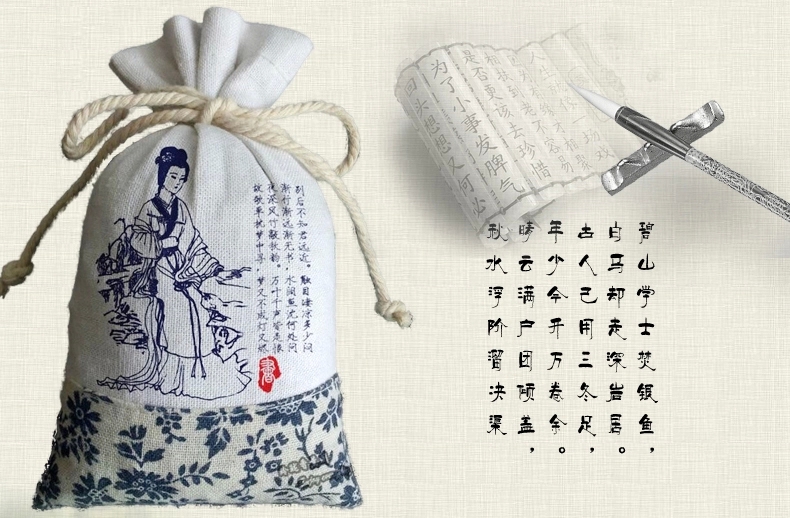 别后不知君远近。触目凄凉多少闷
渐行渐远渐无书，水阔鱼沈何处问
夜深风竹敲秋韵。万叶千声皆是恨
故敧单枕梦中寻，梦又不成灯又烬
人生就像一场戏
因为有缘才相聚
相扶到老不容易
是否更该去珍惜
为了小事发脾气
回头想想又何必
碧山学士焚银鱼，
白马却走深岩居。
古人己用三冬足，
年少今开万卷余。
晴云满户团倾盖，
秋水浮阶溜决渠